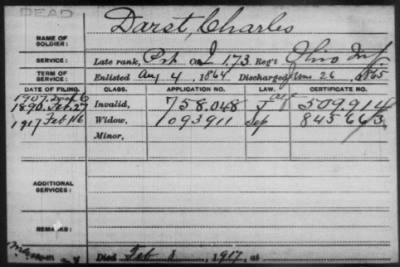 DEAD
NAME OF SOLDIER: Darst, Charles
SERVICE: Late rank, Pvt Co I, 173 Reg't Ohio Inf
TERM OF SERVICE: Enlisted Aug 4, 1864 Discharged June 26, 1865
DATE OF FILING. CLASS. APPLICATION NO. LAW. CERTIFICATE NO.
1907
1890, Feb. 27 Invalid, 758.048 J 509.914
1917 Feb 16 Widow, 1093911 845663
Minor,
ADDITIONAL SERVICES:
REMARKS:
Died Feb 1917, at